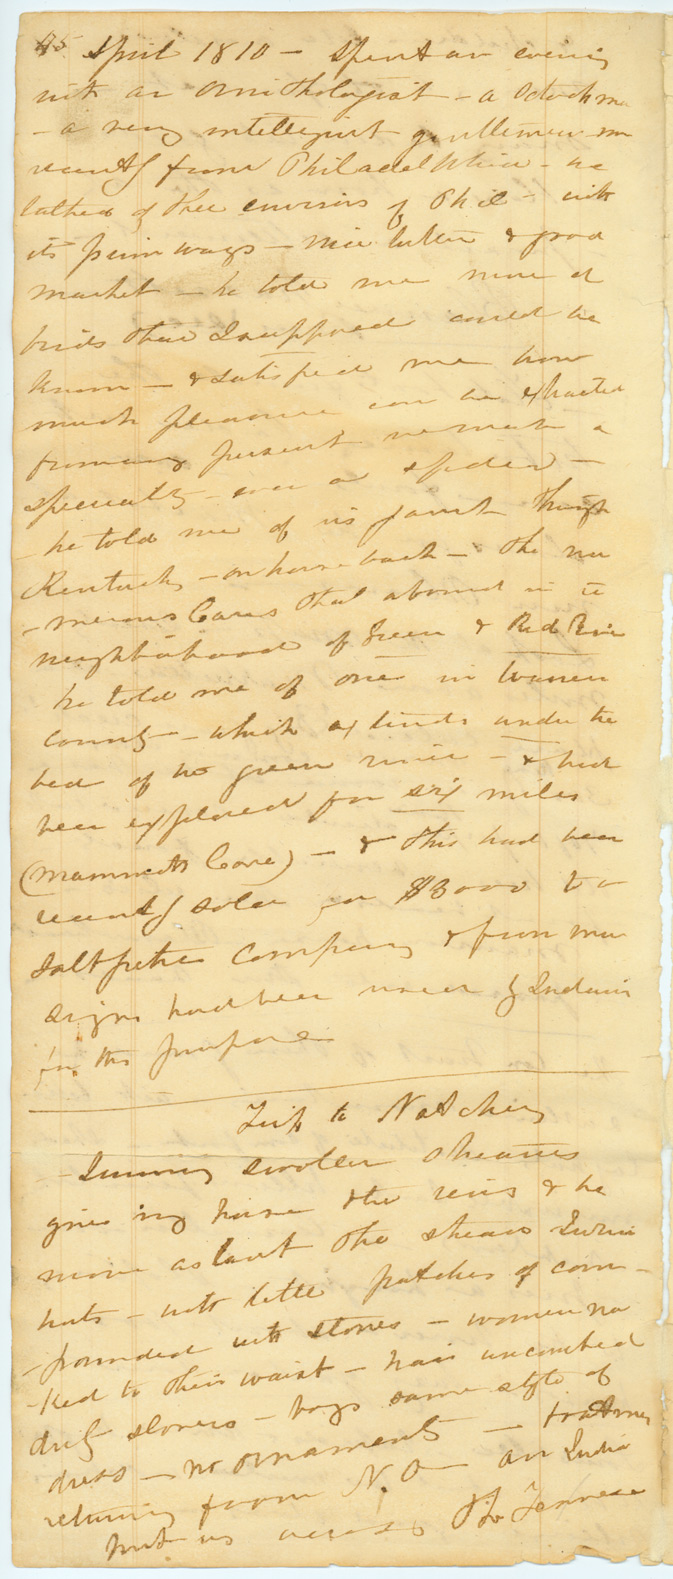 45. April 1810 — Spent an evening
with an Ornithologist — a Scotchman
— a very intelligent gentleman —
recently from Philadelphia — he
talked of the environs of Phil — with
its prim ways — nice butter & good
market — he told me more of
birds than I supposed could be
known — & satisfied me how
much pleasure can be extracted
from any pursuit
specialty — even a spider —
— he told me of his jaunt through
Kentucky — on horse back — the nu
— merous Caves that abound in the
neighborhood of Green & Red River
he told me of one in Warren
county — which extends under the
bed of the green river — & had
been explored for six miles
(Mammoth Cave) — & this had been
recently sold for $3000 to a
Saltpetre Company & from
signs had been used by Indians
for this purpose
Trip to Natchez
— Swimming swollen streams
give my horse the reins & he
move aslant the stream Indian
huts — with little patches of corn —
— pounded with stones — women na
— ked to their waist — hair uncombed
dirty — boys same style of
dress — no ornaments — boatmen
returning from N. O — an India
put us across the Tennessee